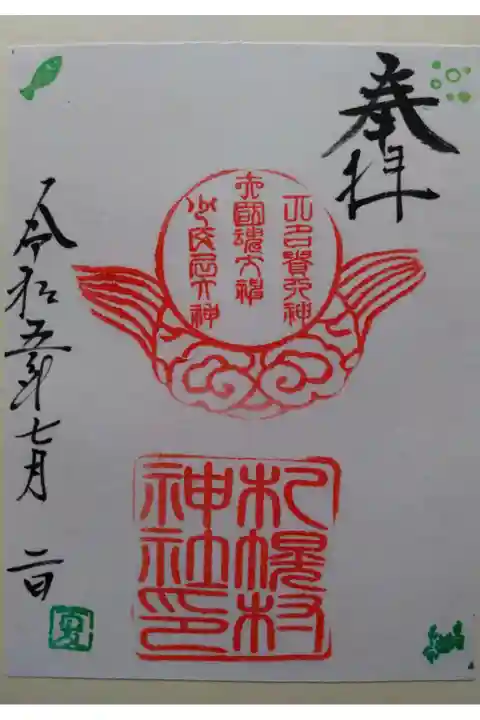 奉拝
大己貴大神
大國魂大神
少彦名大神
札幌村
神社印
令和五年七月二日
夏